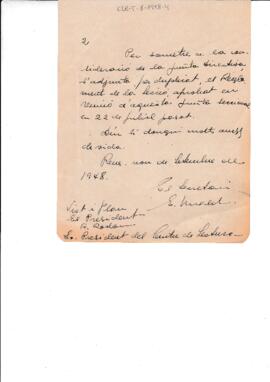 2
Per sometre a la con-
sideració de la Junta Directiva
s'adjunta, per duplicat, el Regla-
ment de la Secció, aprobat en
reunió d'aquesta Junta
en 22 de juliol passat.
Déu li dongui molts anys
de vida.
Reus, nou de Setembre de
1948.
El Secretari
Vist i plau
El President
Sr. President del Centre de Lectura.